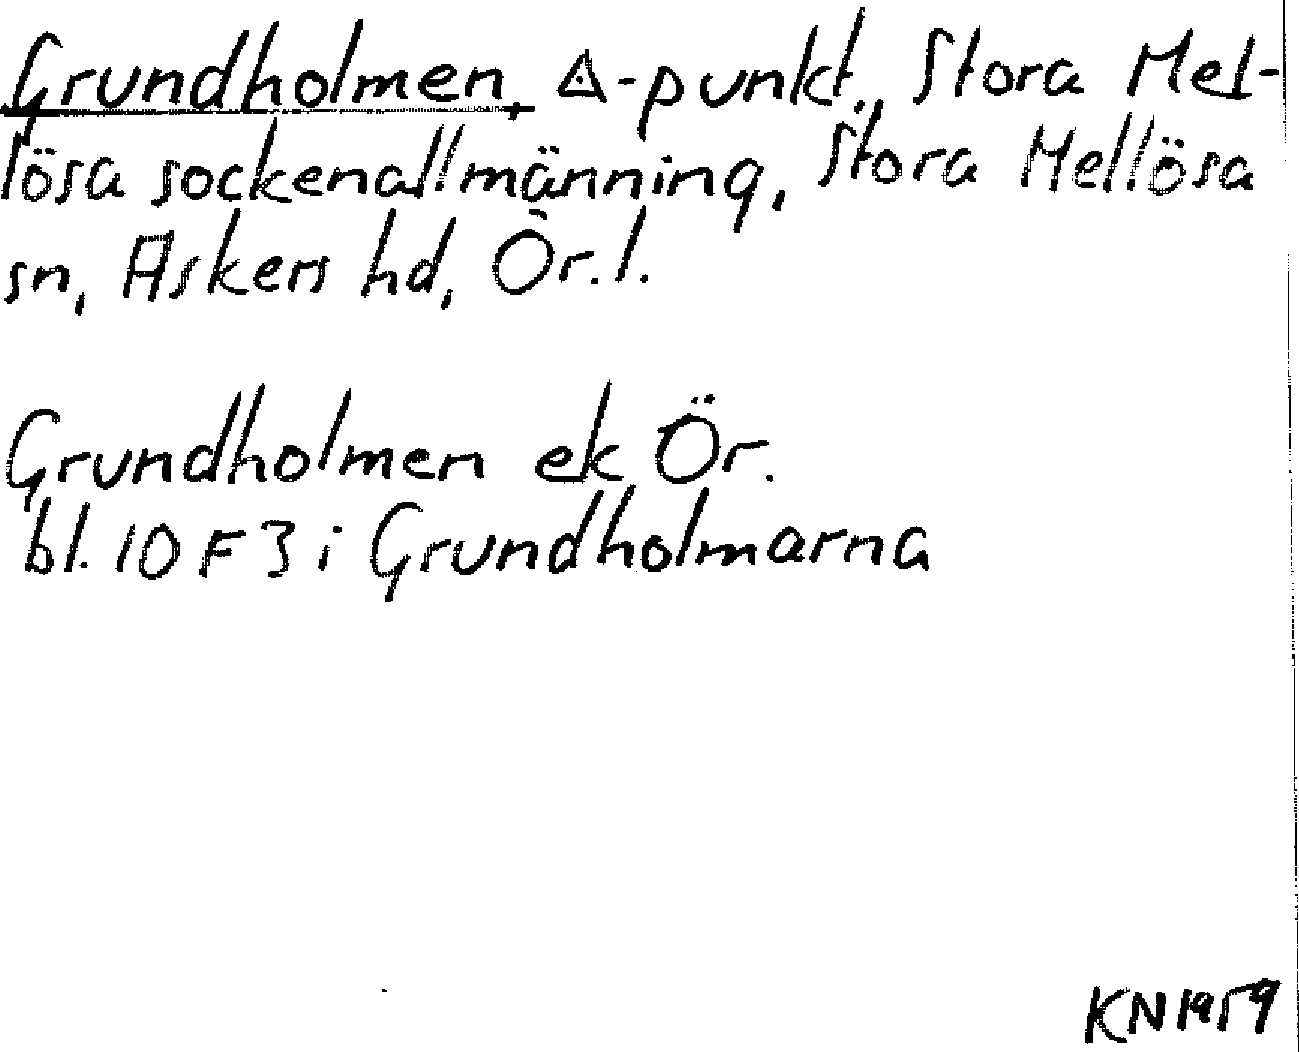 Grundholmen, △-punkt., Stora Mel-
lösa sockenallmänning, Stora Mellösa
sn, Askers hd, Ör. l.
Grundholmen ek Ör.
bl. 10 F 3 i Grundholmarna
KN 1959